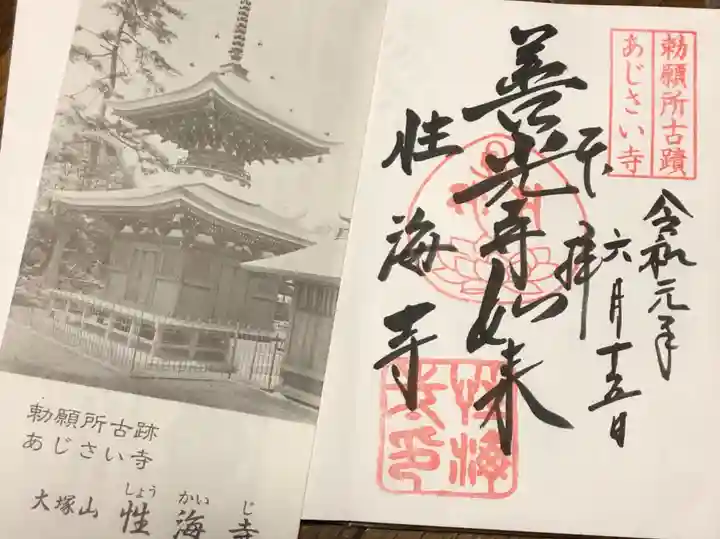 勅願所古跡
あじさい寺
大塚山 性海寺
しょう かい じ
勅願所古蹟
あじさい寺
令和元年
六月十五日
奉拝
善光寺如来
性海寺